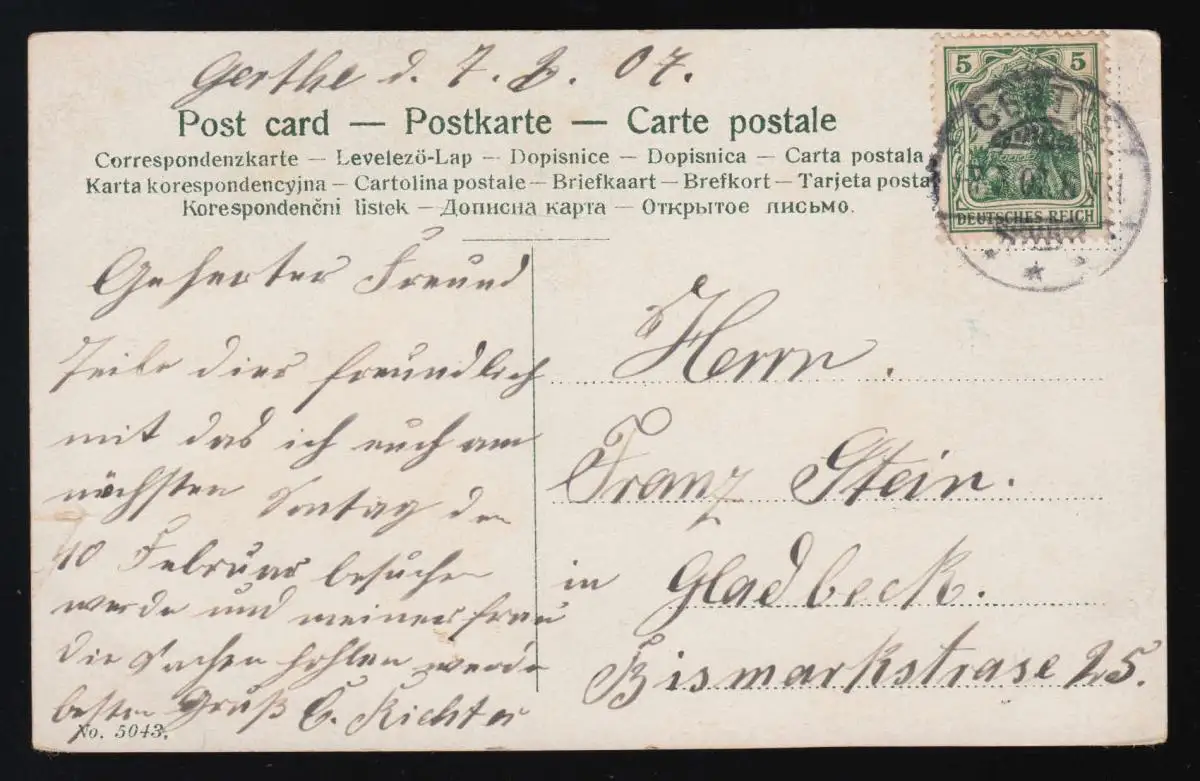 Gerthe d. 7. 2. 07.
Post card — Postkarte — Carte postale
Correspondenzkarte — Levelező-Lap — Dopisnice — Dopisnica — Carta postala
Karta korespondencyjna — Cartolina postale — Briefkaart — Brefkort — Tarjeta postal
Korespondenční listek — Дописна карта — Открытое письмо.
5 5
DEUTSCHES REICH
Geherter Freund
Teile dies freundlich
mit das ich euch am
nächsten Sontag den
10 Februar besuchen
werde und meiner frau
die sachen hohlen werde
besten Gruß C. Richter
No. 5043.
Herrn.
Franz Stein.
in Gladbeck.
Bismarkstrase 25.